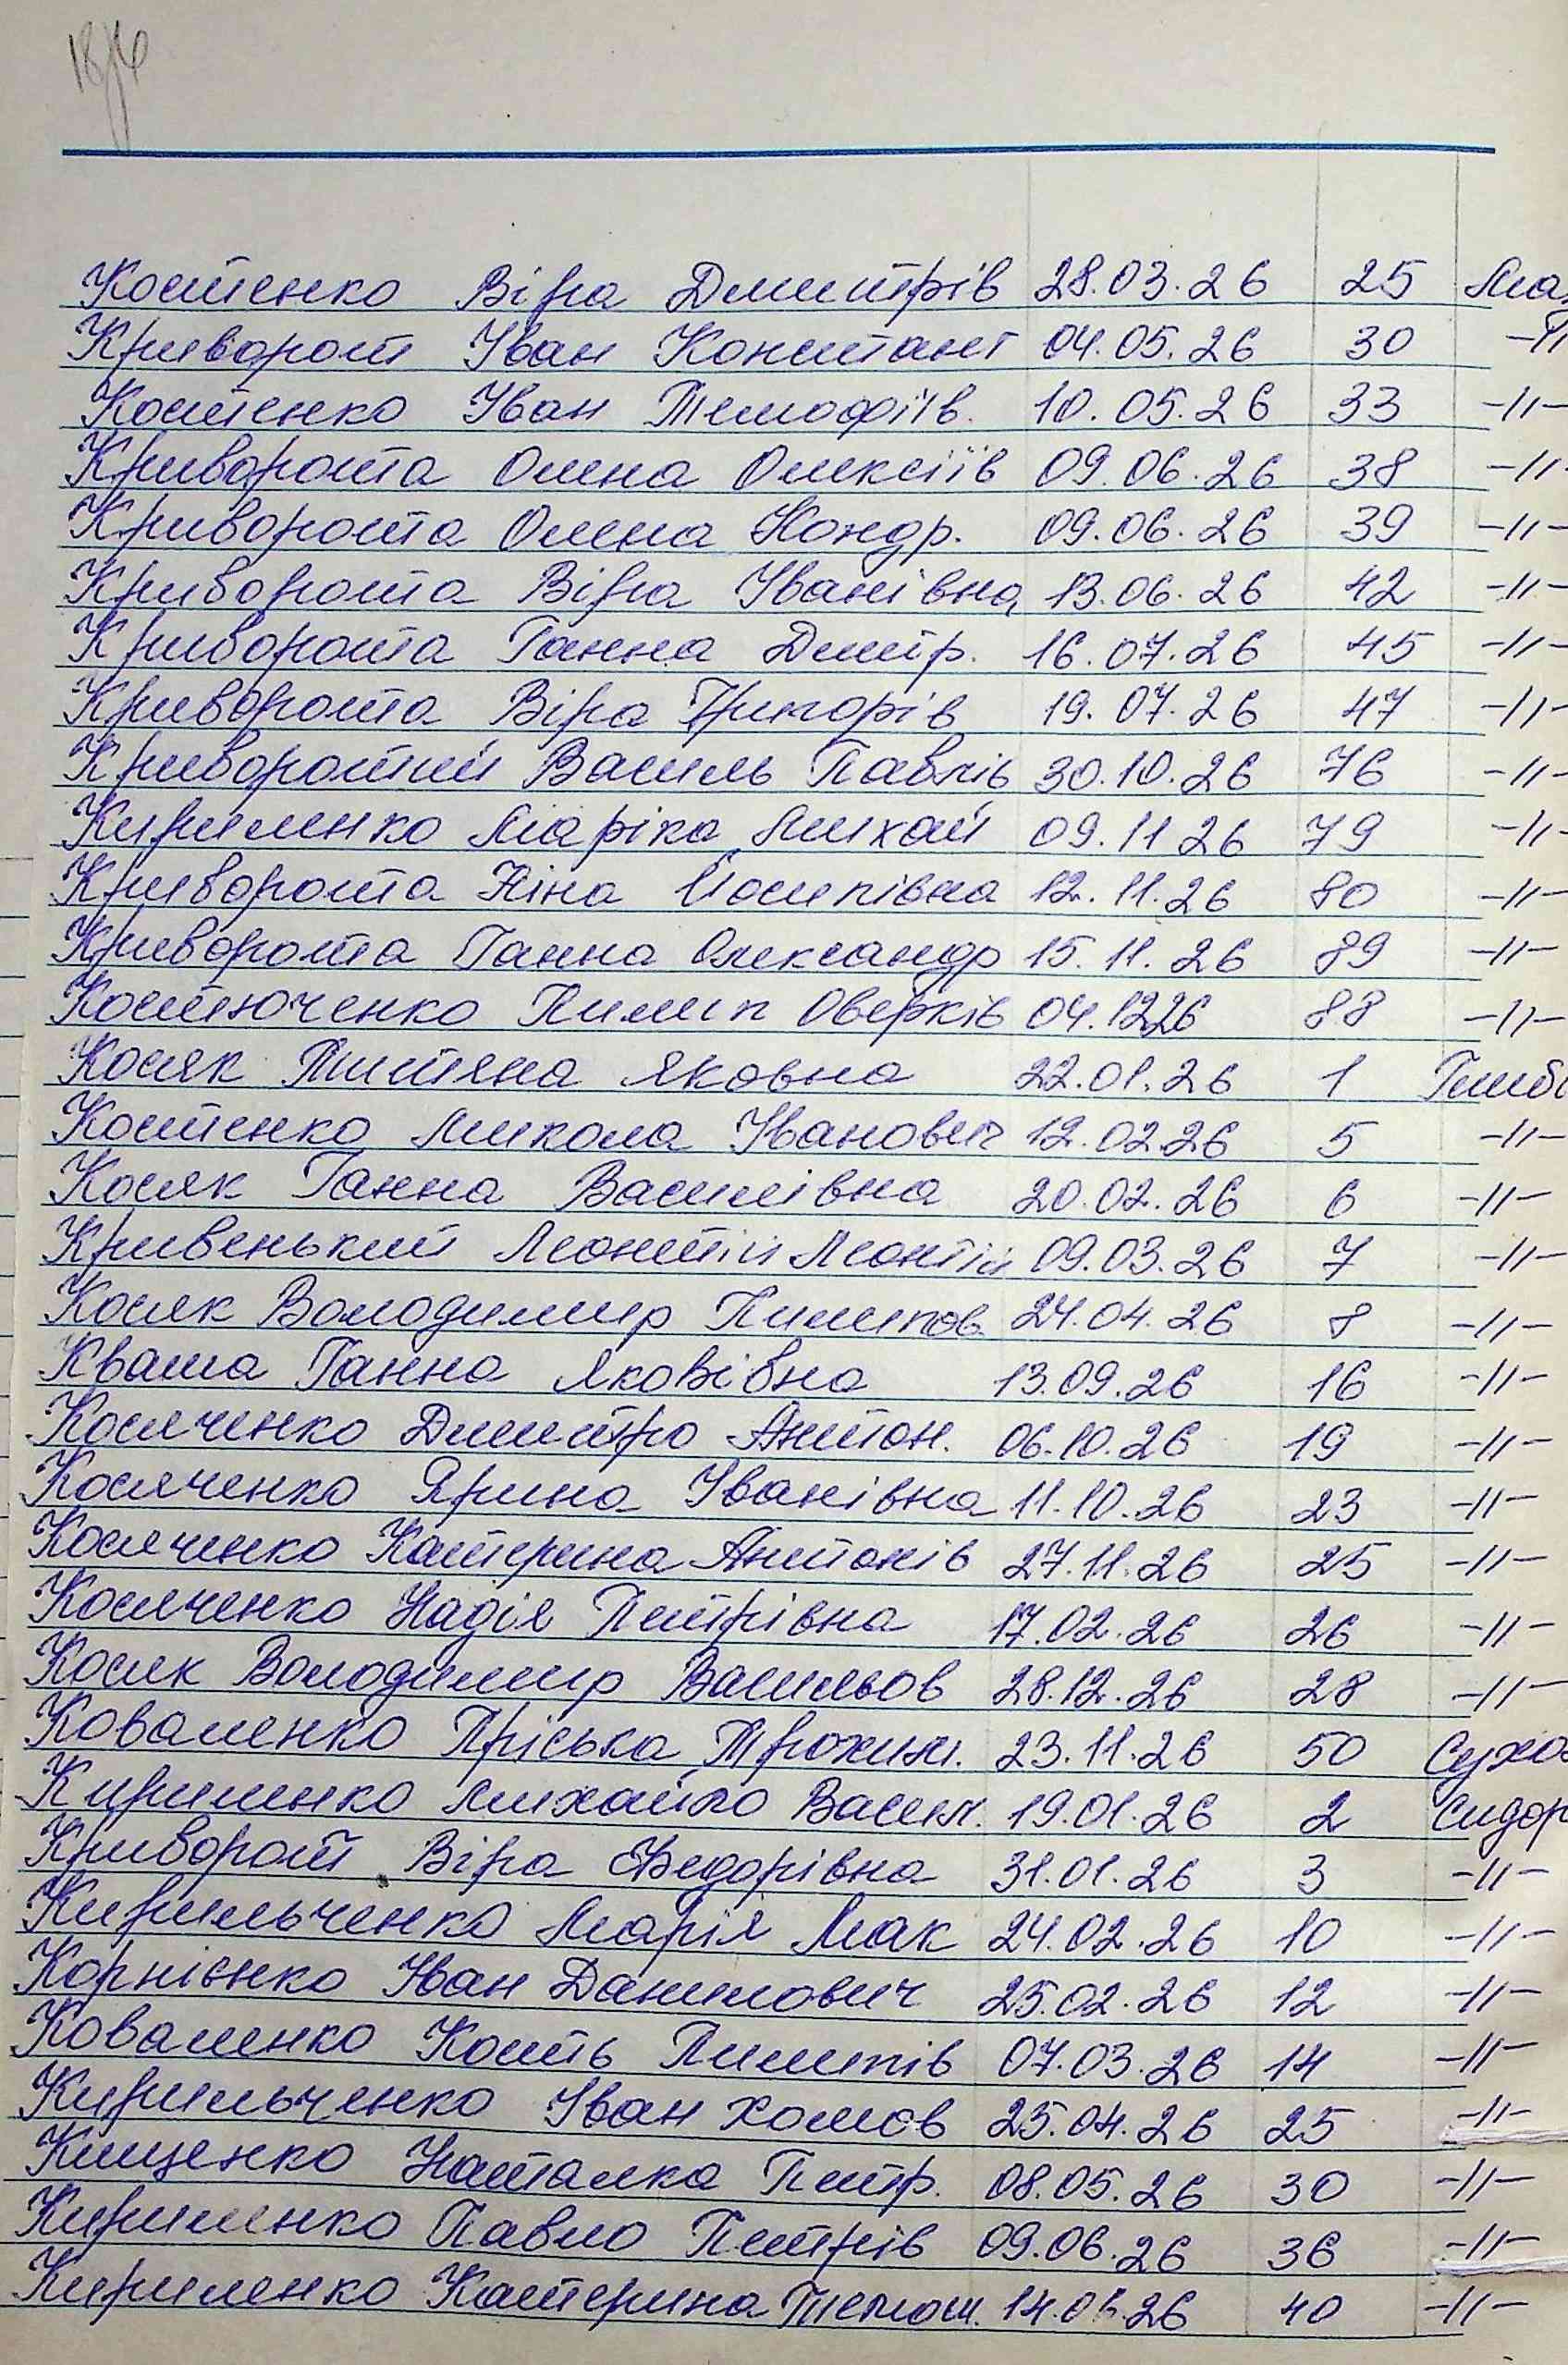 Костенко Віра Дмитрів 28.03.26 25 Ма
Криворот Іван Констант 04.05.26 30 -//
Костенко Іван Темофіїв. 10.05.26 33 -//-
Кривороста Олена Олексіїв 09.06.26 38 -//-
Кривороста Олена Кондр. 09.06.26 39 -//-
Кривороста Віра Іванівна 13.06.26 42 -//-
Кривороста Ганна Дмитр. 16.07.26 45 -//-
Кривороста Віра Григорів 19.07.26 47 -//-
Криворостий Василь Павлів 30.10.26 76 -//-
Кириленко Маріка Михай 09.11 26 79 -//-
Кривороста Ніна Йосипівна 12.11.26 80 -//-
Кривороста Ганна Олександр 15.11.26 89 -//-
Костюченко Пилип Оверків 04.12.26 88 -//-
Косяк Титяна Яковна 22.01.26 1 Глиб
Костенко Микола Іванович 12.02.26 5 -//-
Косяк Ганна Василівна 20.02.26 6 -//-
Кривенький Леонтій Леонтій 09.03.26 7 -//-
Косяк Володимир Пилипов. 24.04.26 8 -//-
Кваша Ганна Яковівна 13.09.26 16 -//-
Косяченко Дмитро Антон. 06.10.26 19 -//-
Косяченко Ярина Іванівна 11.10.26 23 -//-
Косяченко Катерина Антонів 27.11.26 25 -//-
Косяченко Надія Петрівна 17.02.26 26 -//-
Косяк Володимир Васильов 28.12.26 28 -//-
Коваленко Пріська Трохим. 23.11.26 50 Сухо
Кириленко Михайло Васил. 19.01.26 2 Сидор
Криворот Віра Федорівна 31.01.26 3 -//-
Кирильченко Марія Мак 24.02.26 10 -//-
Корнієнко Іван Данилович 25.02.26 12 -//-
Коваленко Кость Пилипів 07.03.26 14 -//-
Кирильченко Іван Хомов 25.04.26 25 -//-
Кищенко Наталка Петр. 08.05.26 30 -//-
Кириленко Павло Петрів 09.06.26 36 -//-
Кириленко Катерина Тимош. 14.06.26 40 -//-